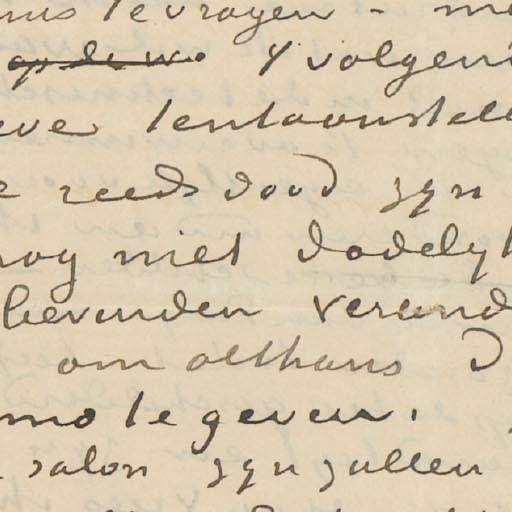 te vragen – m
op de w. Y volgen
eve tentoonstell
e reeds dood zyn
nog niet dodelyk
bevinden verand
om althans D
mo te geven.
salon zyn zullen